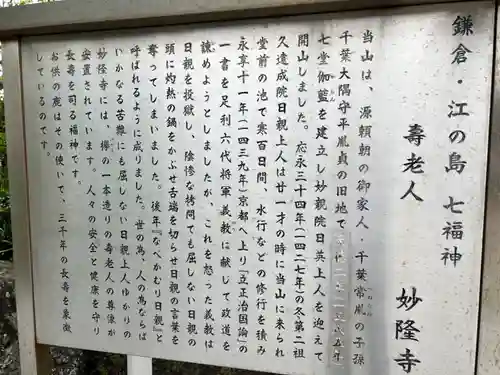 鎌倉・江の島 七福神
壽老人 妙隆寺
当山は、源頼朝の御家人・千葉常胤の子孫
千葉大隅守平胤貞の旧地で
七堂伽藍を建立し妙親院日英上人を迎えて
開山しました。応永三十四年(一四二七年)の冬、第二祖
久遠成院日親上人は廿一才の時に当山に来られ
堂前の池で寒百日間、水行などの修行を積み
永享十一年(一四三九年)京都へ上り『立正治国論』の
一書を足利六代将軍義教に献じて政道を
諫めようとしましたが、これを怒った義教は
日親を投獄し、陰惨な拷問でも屈しない日親の
頭に灼熱の鍋をかぶせ舌端を切らせ日親の言葉を
奪ってしまいました。後年『なべかむり日親』と
呼ばれるように成りました。世の為、人の為ならば
いかなる苦難にも屈しない日親上人ゆかりの
妙隆寺には、欅の一本造りの寿老人の尊像が
安置されています。人々の安全と健康を守り
長寿を司る福神です。
お供の鹿はその使いで、三千年の長寿を象徴
しているのです。